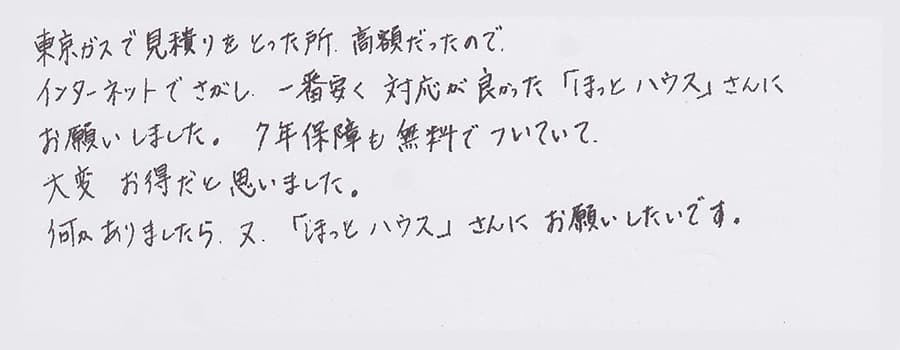 東京ガスで見積りをとった所、高額だったので、
インターネットでさがし、一番安く 対応が良かった「ほっとハウス」さんに
お願いしました。 7年保障も無料でついていて、
大変 お得だと思いました。
何かありましたら、又、「ほっとハウス」さんに お願いしたいです。